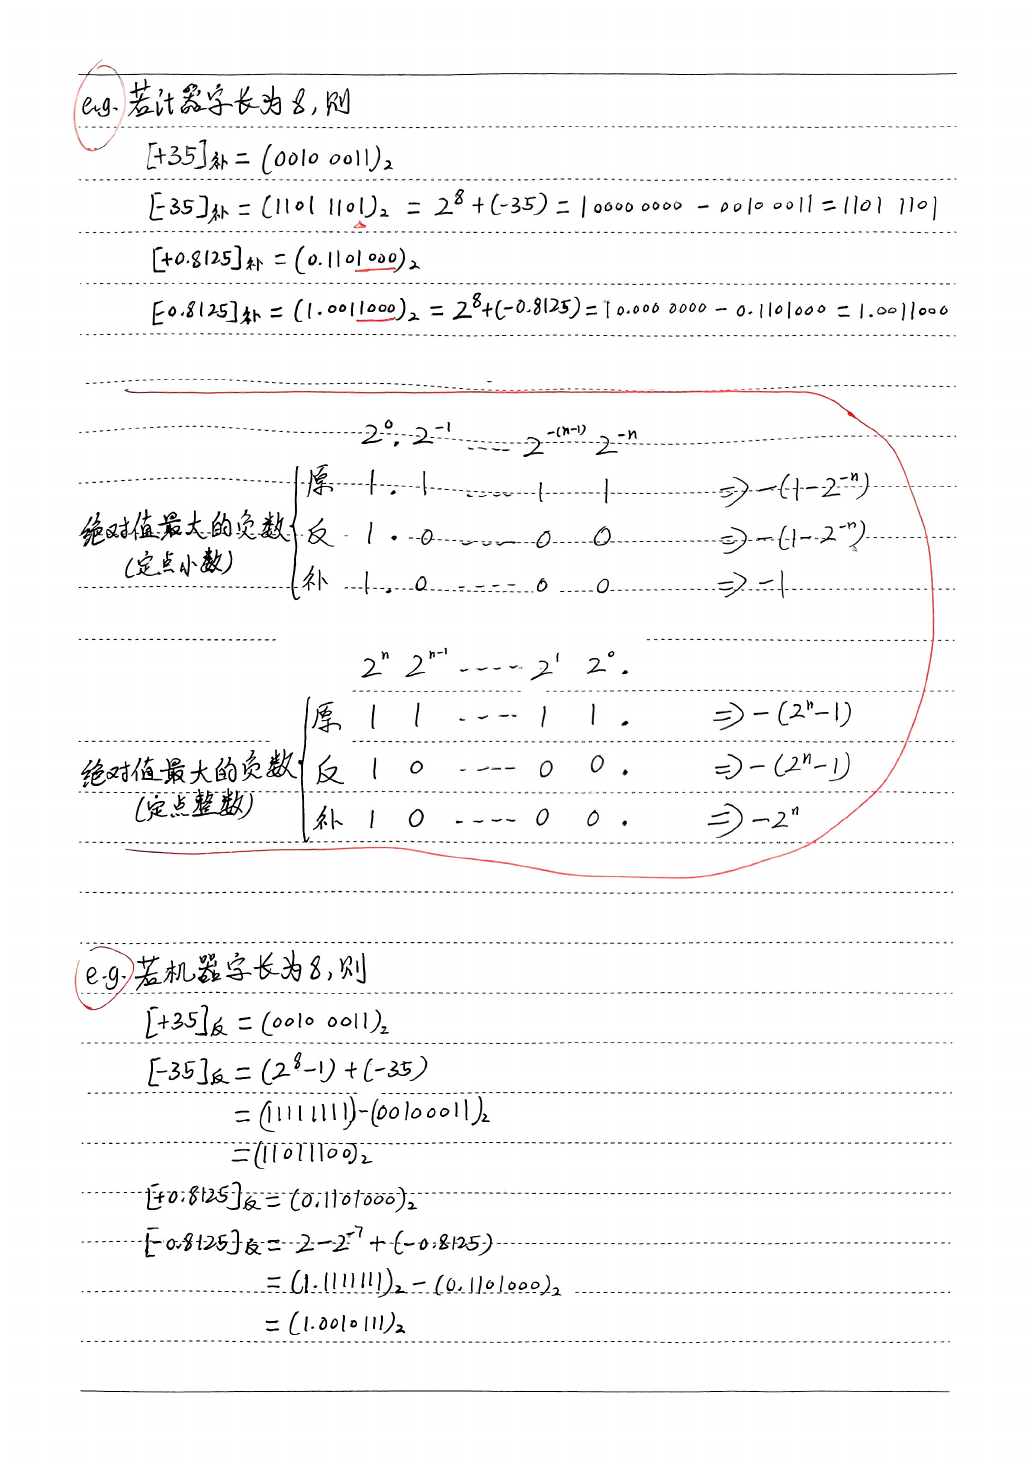 e.g. 若计器字长为8,则
[+35]补 = (0010 0011)₂
[-35]补 = (1101 1101)₂ = 2⁸+(-35) = 10000 0000 - 0010 0011 = 1101 1101
[+0.8125]补 = (0.1101000)₂
[-0.8125]补 = (1.0011000)₂ = 2⁸+(-0.8125) = 10.000 0000 - 0.1101000 = 1.0011000
2⁰. 2⁻¹ ---- 2⁻⁽ⁿ⁻¹⁾ 2⁻ⁿ
原 1. 1 ---- 1 1 => -(1-2⁻ⁿ)
绝对值最大的负数 反 1. 0 ---- 0 0 => -(1-2⁻ⁿ)
(定点小数) 补 1. 0 ---- 0 0 => -1
2ⁿ 2ⁿ⁻¹ ----- 2¹ 2⁰.
原 1 1 ---- 1 1. => -(2ⁿ-1)
绝对值最大的负数 反 1 0 ---- 0 0. => -(2ⁿ-1)
(定点整数) 补 1 0 ---- 0 0. => -2ⁿ
e.g. 若机器字长为8,则
[+35]反 = (0010 0011)₂
[-35]反 = (2⁸-1)+(-35)
= (11111111)-(00100011)₂
= (11011100)₂
[+0.8125]反 = (0.1101000)₂
[-0.8125]反 = 2-2⁻⁷+(-0.8125)
= (1.1111111)₂ - (0.1101000)₂
= (1.0010111)₂